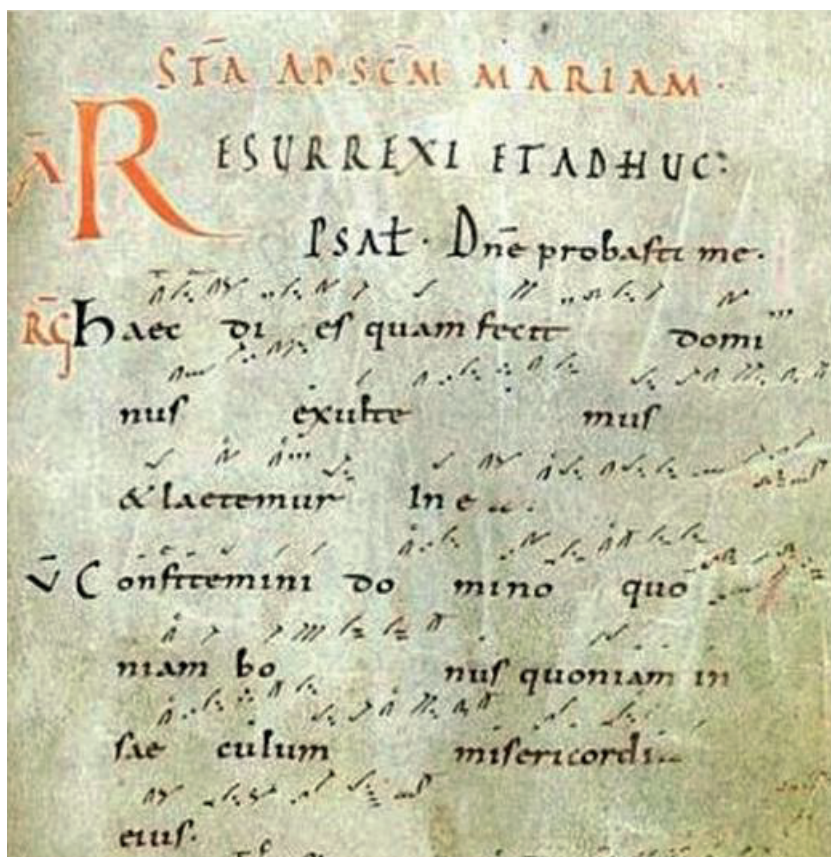 STĀ AD SC̄M MARIAM ·
Ā RESURREXI ET ADHUC:
PSAŁ · Dn̄e probasti me ·
R̄G haec di es quam fecit domi
nus exulte mus
& laetemur In e
V̄ Confitemini do mino quo
niam bo nus quoniam in
sae culum misericordi
eius ·